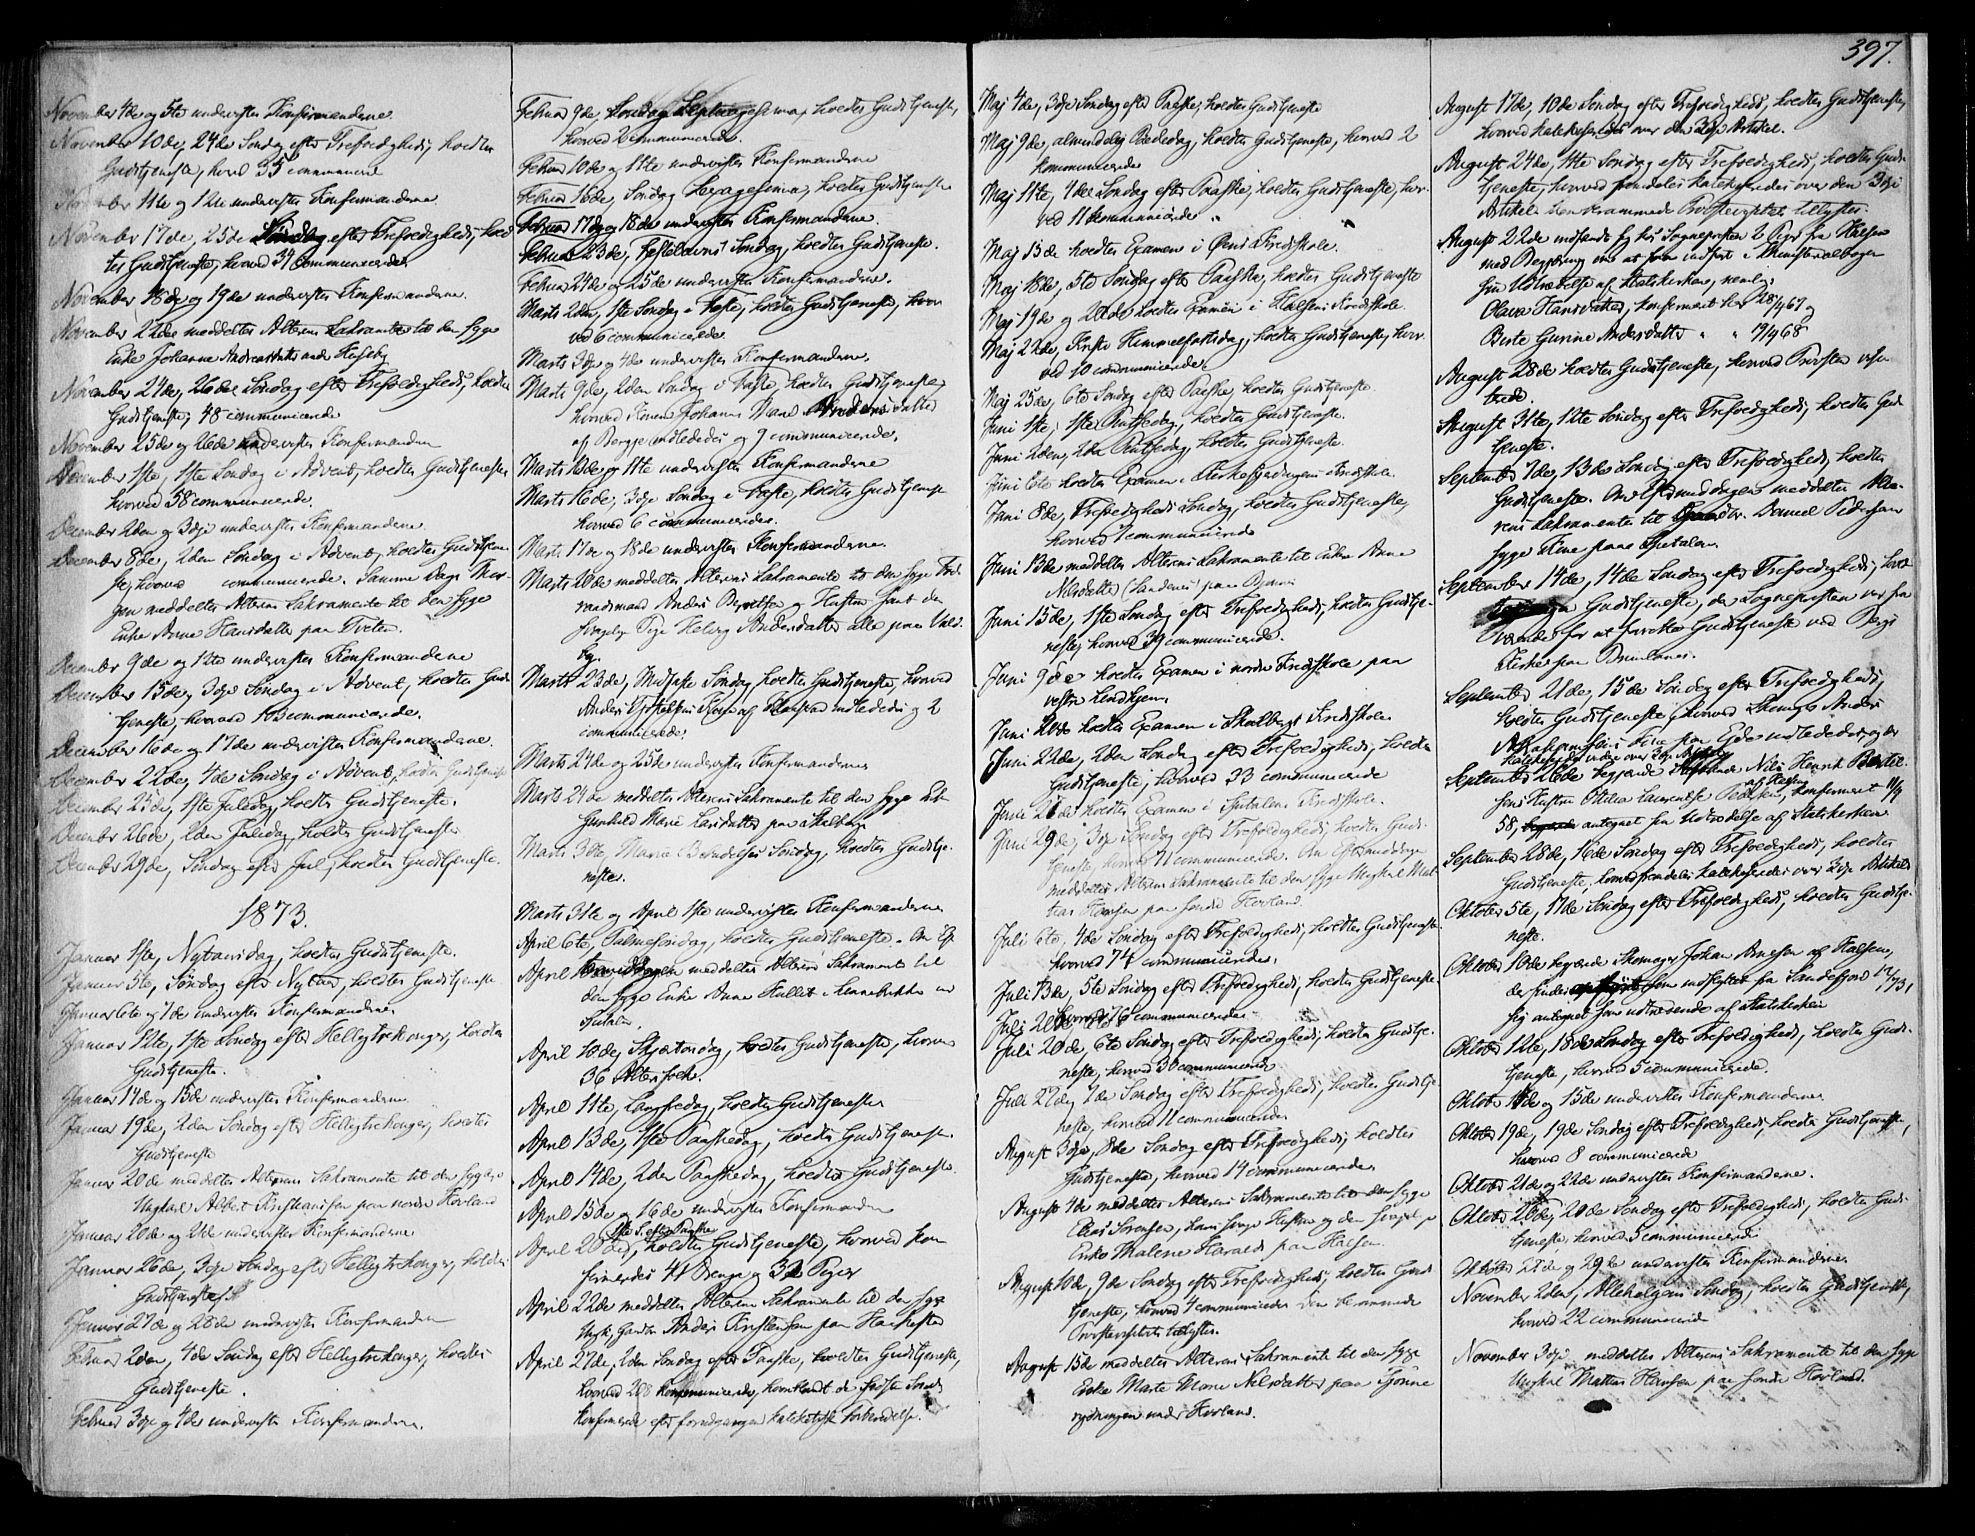 397.
November 4de og 5te underviste Konfirmanderne.
November 10de, 24de Søndag efter Trefoldighed, holdtes
Gudstjeneste, hvorved 35 communicerede
November 11te og 12te underviste Konfirmanderne
November 17de, 25de Søndag efter Trefoldighed, hold
tes Gudstjeneste, hvorved 34 communicerede.
November 18de og 19de underviste Konfirmanderne.
November 22de meddeltes Alterens Sakramente til den syge
Enke Johanne Andreasdatter
November 24de, 26de Søndag efter Trefoldighed, holdtes
Gudstjeneste, 48 communicerede
November 25de og 26de underviste Konfirmanderne
December 1ste, 1ste Søndag i Advent, holdtes Gudstjeneste
hvorved 58 communicerede.
December 2den og 3die underviste Konfirmanderne.
December 8de, 2den Søndag i Advent, holdtes Gudstjene-
ste, hvorved communicerede. Samme Dags Mor-
gen meddeltes Alterens Sakramente til den syge
Enke Anne Hansdatter paa Tveten.
December 9de og 12te underviste Konfirmanderne
December 15de, 3die Søndag i Advent, holdtes Guds
tjeneste, hvorved communicerede.
December 16de og 17de underviste Konfirmanderne.
December 22de, 4de Søndag i Advent, holdtes Gudstjeneste
December 25de, 1ste Juledag, holdtes Gudstjeneste.
December 26de, 2den Juledag holdtes Gudstjeneste
December 29de, Søndag efter Jul, holdtes Gudstjeneste.
1873.
Januar 1ste, Nytaarsdag, holdtes Gudstjeneste.
Januar 5te, Søndag efter Nytaar, holdtes Gudstjeneste
Januar 6te og 7de underviste Konfirmanderne
Januar 12te, 1ste Søndag efter Helligtrekonger, holdtes
Gudstjeneste.
Januar 14de og 15de underviste Konfirmanderne
Januar 19de, 2den Søndag efter Helligtrekonger, holdtes
Gudstjeneste
Januar 20de meddeltes Alterens Sakramente til den syge
Ungkarl Albert Kristiansen paa nordre Hovland
Januar 20de og 21de underviste Konfirmanderne
Januar 26de, 3die Søndag efter Helligtrekonger, holdtes
Gudstjeneste
Januar 27de og 28de underviste Konfirmanderne
Februar 2den, 4de Søndag efter Helligtrekonger, holdtes
Gudstjeneste.
Februar 3die og 4de underviste Konfirmanderne.
Februar 9de, Søndag Septuagesima, holdtes Gudstjeneste,
hvorved 2 communicerede.
Februar 10de og 11te underviste Konfirmanderne
Februar 16de, Søndag Sexagesima, holdtes Gudstjeneste
Februar 17de og 18de underviste Konfirmanderne.
Februar 23de, Fastelavns Søndag, holdtes Gudstjeneste.
Februar 24de og 25de underviste Konfirmanderne.
Marts 2den, 1ste Søndag i Faste, holdtes Gudstjeneste, hvor
ved 6 communicerede
Marts 3die og 4de underviste Konfirmanderne.
Marts 9de, 2den Søndag i Faste holdtes Gudstjeneste
hvorved Konen Johanne Marie Andersdatter
af Berge indlededes og 9 communicerede.
Marts 10de og 11te underviste Konfirmanderne
Marts 16de, 3die Søndag i Faste, holdtes Gudstjeneste
hvorved 6 communicerede.
Marts 17de og 18de underviste Konfirmanderne.
Marts 20de meddeltes Alterens Sakramente til den syge
Anders og Hustru samt den
syge Pige Helvig Andersdatter alle paa
Marts 23de, Midfaste Søndag, holdtes Gudstjeneste, hvorved
Anders Kone af indlededes og 2
communicerede.
Marts 24de og 25de underviste Konfirmanderne
Marts 24de meddeltes Alterens Sakramente til den syge
Gunhild Marie Larsdatter paa Skalberg
Marts 30te, Mariæ Bebudelses Søndag, holdtes Gudstje-
neste.
Marts 31te og April 1ste underviste Konfirmanderne
April 6te, Palmesøndag, holdtes Gudstjeneste. Om Ef
April termiddagen meddeltes Alterens Sakramente til
den syge Enke Anne
Spitalen.
April 10de, Skjærtorsdag, holdtes Gudstjeneste, hvorved
36 Altersfolk.
April 11te, Langfredag, holdtes Gudstjeneste
April 13de, 1ste Paaskedag, holdtes Gudstjeneste.
April 14de, 2den Paaskedag, holdtes Gudstjeneste.
April 15de og 16de underviste Konfirmanderne
1ste S. efter Paaske
April 20de, holdtes Gudstjeneste, hvorved kon
firmeredes 41 Drenge og 32 Piger
April 22de meddeltes Alterens Sakramente til den syge
Anders Kristensen paa
April 27de, 2den Søndag efter Paaske, holdtes Gudstjeneste,
hvorved 208 kommunicerede, hvoriblandt de sidste Søndag
konfirmerede efter foregangen kateketisk Forberedelse.
Maj 4de, 3die Søndag efter Paaske, holdtes Gudstjeneste
Maj 9de, almindelig Bededag, holdtes Gudstjeneste, hvorved 2
kommunicerede
Maj 11te, 4de Søndag efter Paaske, holdtes Gudstjeneste, hvor-
ved 11 kommunicerede.
Maj 15de holdtes Examen i Kredsskole.
Maj 18de, 5te Søndag efter Paaske, holdtes Gudstjeneste
Maj 19de og 20de holdtes Examen i Halsens Kredsskole.
Maj 22de, Kristi Himmelfartsdag, holdtes Gudstjeneste, hvor-
ved 10 communicerede.
Maj 25de, 6te Søndag efter Paaske, holdtes Gudstjeneste.
Juni 1ste, 1ste Pintsedag, holdtes Gudstjeneste.
Juni 2den, 2den Pintsedag, holdtes Gudstjeneste.
Juni 6te holdtes Examen i Kredsskole.
Juni 8de, Trefoldigheds Søndag, holdtes Gudstjeneste,
hvorved 7 communicerede
Juni 13de meddeltes Alterens Sakramente til Enke Anne
Nilsdatter paa
Juni 15de, 1ste Søndag efter Trefoldighed, holdtes Gudstje-
neste, hvorved 39 communicerede.
Juni 9de holdtes Examen i nordre Kredsskole paa
vestre
Juni 20de holdtes Examen i Skalbergs Kredsskole
Juni 22de, 2den Søndag efter Trefoldighed, holdtes
Gudstjeneste, hvorved 33 communicerede
Juni holdtes Examen i Spitalens Kredsskole.
Juni 29de, 3die Søndag efter Trefoldighed, holdtes Guds-
tjeneste, hvorved 71 communicerede. Om Eftermiddagen
meddeltes Alterens Sakramente til den syge Ungkarl Mat-
tias Hansen paa søndre Hovland.
Juli 6te, 4de Søndag efter Trefoldighed, holdtes Gudstjeneste
hvorved 74 communicerede.
Juli 13de, 5te Søndag efter Trefoldighed, holdtes Gudstjeneste.
hvorved 26 communicerede.
Juli 20de, 6te Søndag efter Trefoldighed, holdtes Gudstje-
neste, hvorved 30 communicerede
Juli 27de, 7de Søndag efter Trefoldighed, holdtes Gudstje-
neste, hvorved 11 communicerede.
August 3die, 8de Søndag efter Trefoldighed, holdtes
Gudstjeneste, hvorved 14 communicerede
August 4de meddeltes Alterens Sakramente til den syge
Sørensen, hans syge Hustru og den syge
Enke Malene paa Halsen.
August 10de, 9de Søndag efter Trefoldighed, holdtes Guds
tjeneste, hvorved 4 communicerede. Den berammede
Provstevisitats tillystes.
August 15de meddeltes Alterens Sakramente til den syge
Enke Marte Marie Nilsdatter paa
rydningen under Hovland.
August 17de, 10de Søndag efter Trefoldighed, holdtes Gudstjeneste,
hvorved katekiseredes over den 3die Artikel.
August 24de, 11te Søndag efter Trefoldighed, holdtes Guds-
tjeneste, hvorved fremdeles katekiseredes over den 3die
Artikel. Den berammede Provstevisitats tillystes.
August 22de indfandt sig hos Sognepresten 2 Piger fra Halsen
med Begjæring om at faa indført i Ministerialbogen
sin Udtrædelse af Statskirken, nemlig:
Olava Hansdatter, konfirmert her 28/4 67 og
Berte Gurine Andersdatter " " 19/4 68
August 28de holdtes Gudstjeneste, hvorved Provsten visi-
terede.
August 31te, 12te Søndag efter Trefoldighed, holdtes Guds
tjeneste.
September 7de, 13de Søndag efter Trefoldighed, holdtes
Gudstjeneste. Om Eftermiddagen meddeltes Alte-
rens Sakramente til Daniel Pedersens
syge Kone paa Spitalen.
September 14de, 14de Søndag efter Trefoldighed, holdt
Gudstjeneste, da Sognepresten var fra
værende for at forrette Gudstjeneste ved Bergs
Kirke paa Brunlanes.
September 21de, 15de Søndag efter Trefoldighed,
holdtes Gudstjeneste, hvorved Anders
Kone paa indlededes, og der
katekiseredes videre over 3die Artikel
September 26de begjærede Nils Henrik Bertel-
sens Hustru Otilia Laurentse Pedersen af Halsen, konfirmert
58, antegnet sin Udtrædelse af Statskirken
September 28de, 16de Søndag efter Trefoldighed, holdtes
Gudstjeneste, hvorved fremdeles katekiseredes over 3die Artikel
Oktober 5te, 17de Søndag efter Trefoldighed, holdtes Gudstje-
neste.
Oktober 10de begjærede Skomager Johan Arnesen af Halsen,
der findes som indflyttet fra Sandefjord
sig antegnet som udtrædende af Statskirken
Oktober 12te, 18de Søndag efter Trefoldighed, holdtes Guds-
tjeneste, hvorved 5 communicerede.
Oktober 14de og 15de underviste Konfirmanderne
Oktober 19de, 19de Søndag efter Trefoldighed, holdtes Gudstjeneste,
hvorved 8 communicerede
Oktober 21de og 22de underviste Konfirmanderne.
Oktober 26de, 20de Søndag efter Trefoldighed, holdtes Guds-
tjeneste, hvorved 5 communicerede
Oktober og 29de underviste Konfirmanderne
November 2den, Allehelgens Søndag, holdtes Gudstjeneste,
hvorved 22 communicerede
November 3die meddeltes Alterens Sakramente til den syge
Ungkarl Mattias Hansen paa søndre Hovland.